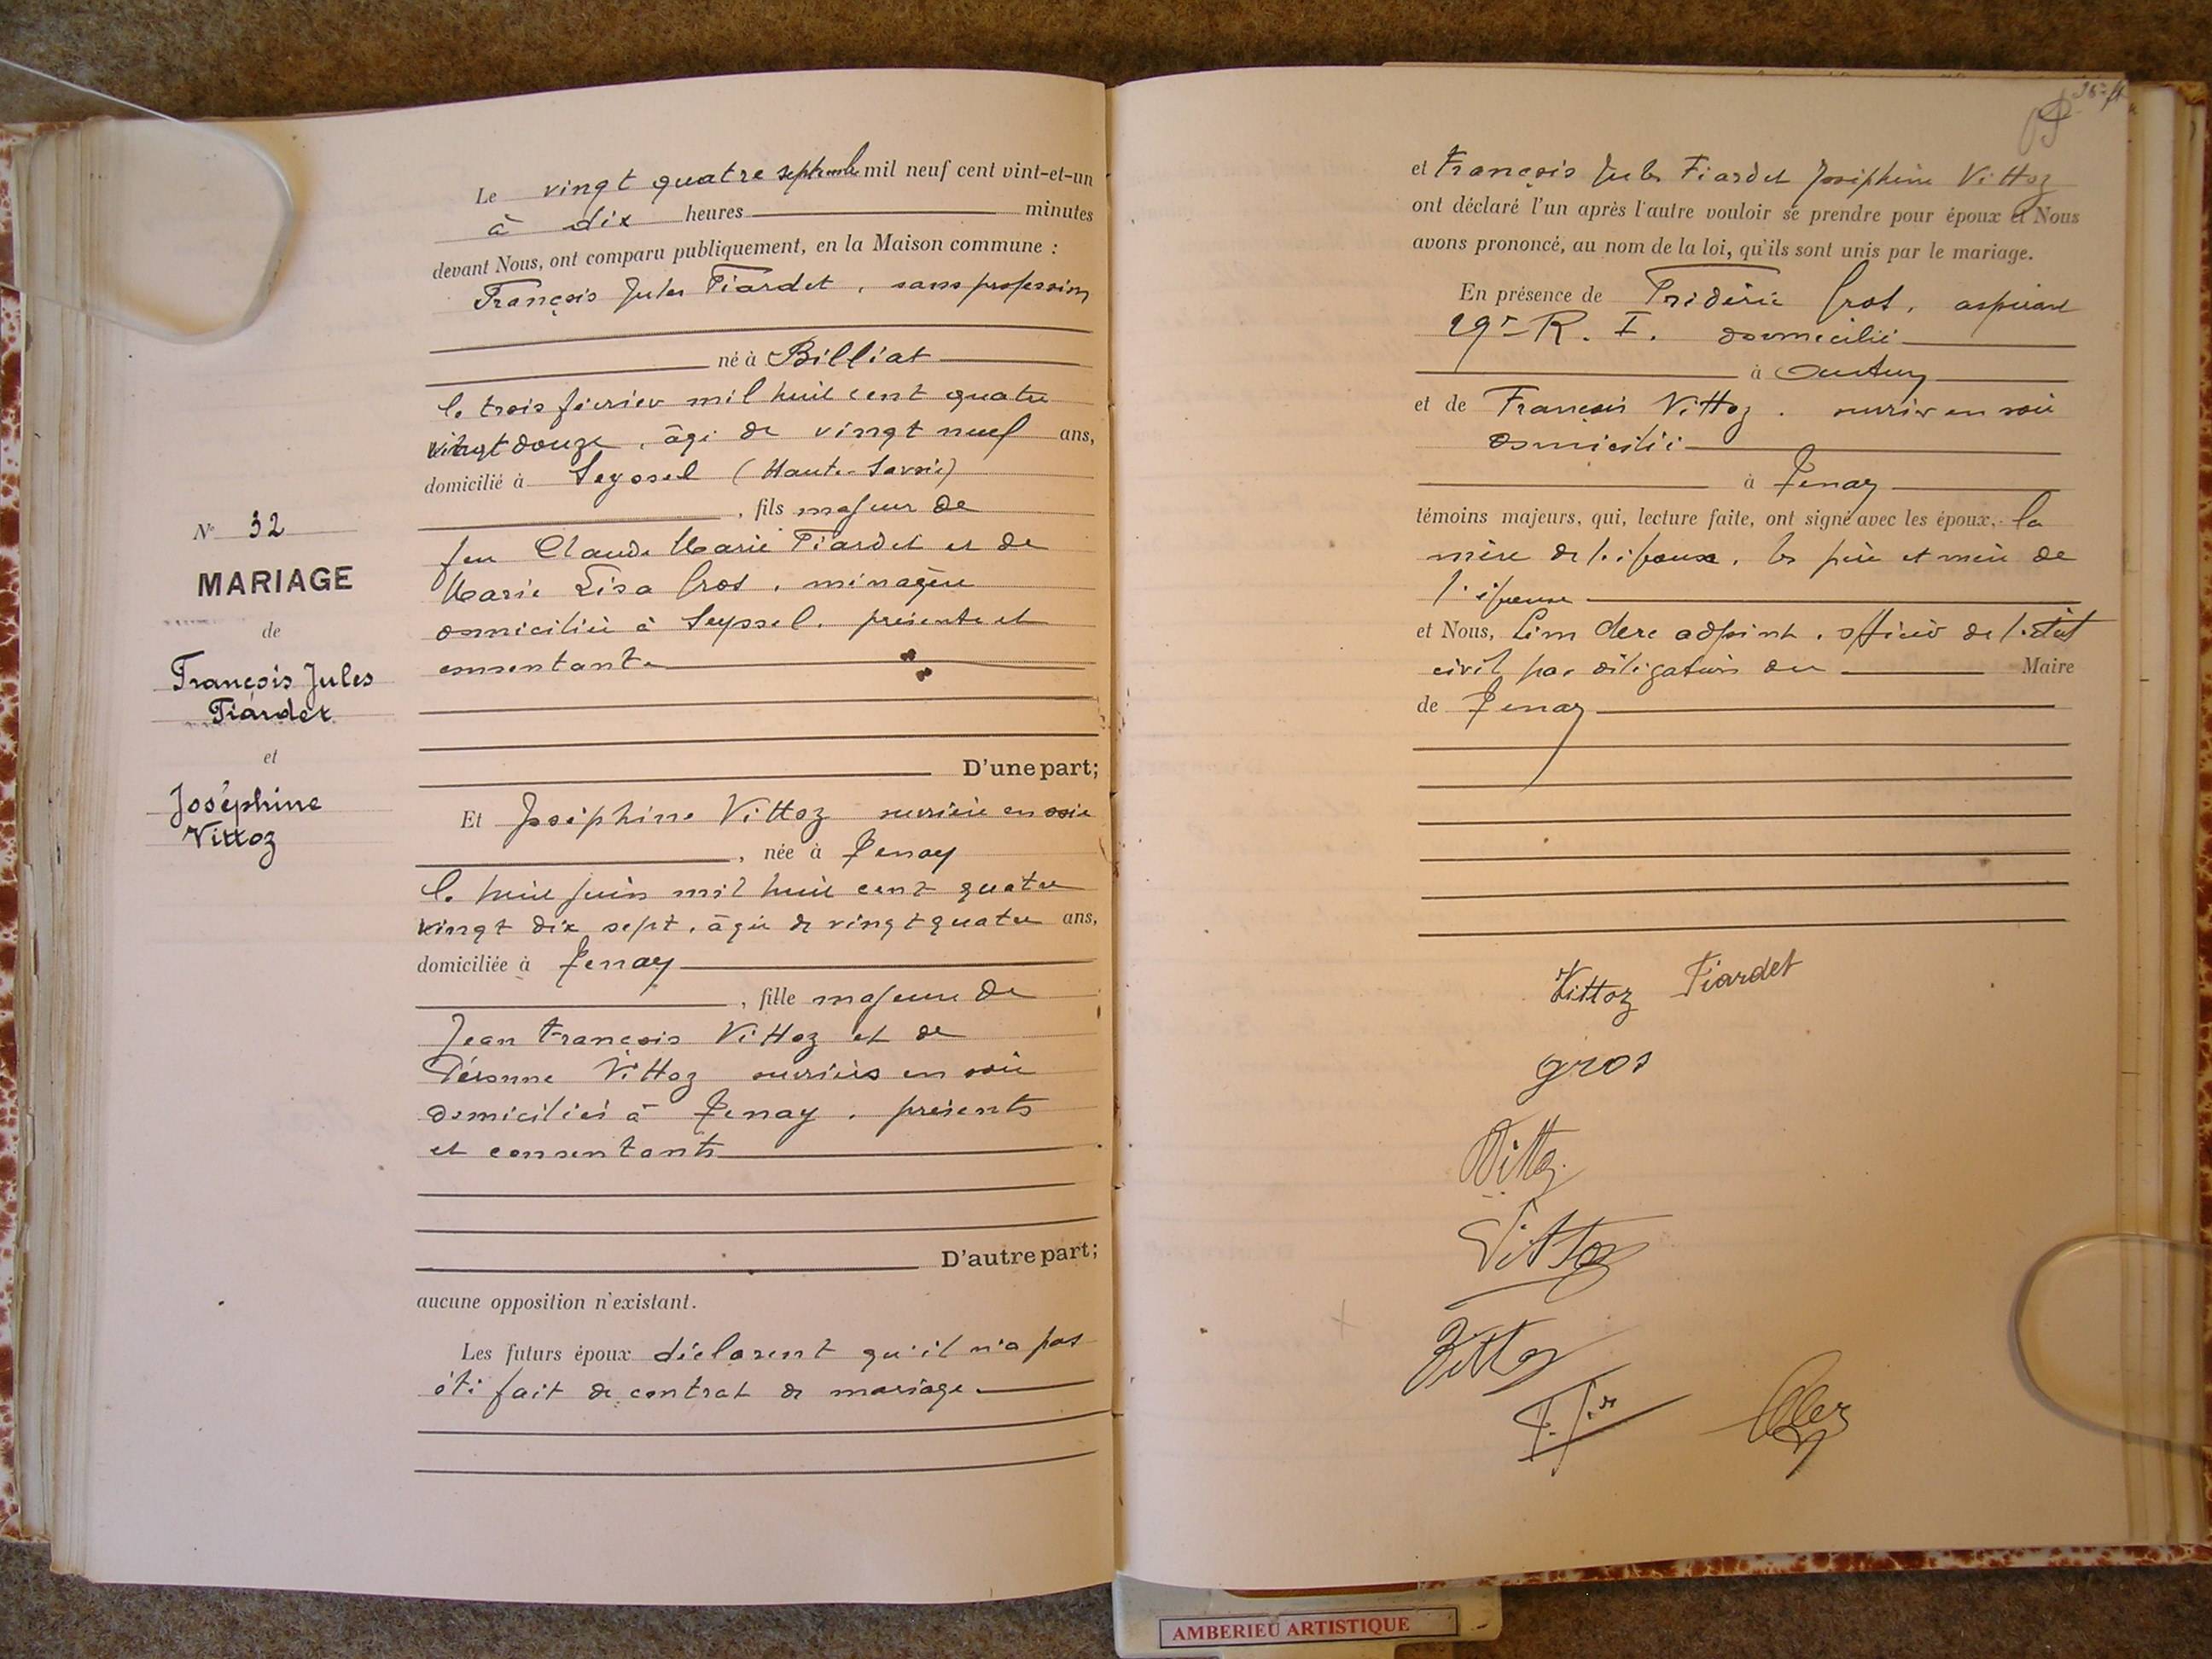 N° 32
MARIAGE
de
François Jules
Fiardet
et
Joséphine
Vittoz
Le vingt quatre septembre mil neuf cent vint-et-un
à dix heures minutes
devant Nous, ont comparu publiquement, en la Maison commune :
François Jules Fiardet, sans profession
né à Billiat
le trois février mil huit cent quatre
vingt douze, âgé de vingt neuf ans,
domicilié à Seyssel (Haute-Savoie)
, fils majeur de
feu Claude Marie Fiardet et de
Marie Lisa Gros, ménagère
domiciliée à Seyssel, présente et
consentante
D'une part;
Et Joséphine Vittoz ouvrière en soie
, née à Tenay
le huit juin mil huit cent quatre
vingt dix sept, âgée de vingt quatre ans,
domiciliée à Tenay
, fille majeure de
Jean François Vittoz et de
Vittoz ouvriers en soie
domiciliés à Tenay, présents
et consentants
D'autre part;
aucune opposition n'existant.
Les futurs époux déclarent qu'il n'a pas
été fait de contrat de mariage
et François Jules Fiardet Joséphine Vittoz
ont déclaré l'un après l'autre vouloir se prendre pour époux et Nous
avons prononcé, au nom de la loi, qu'ils sont unis par le mariage.
En présence de Frédéric Gros, aspirant
29e R. I. domicilié
à Autun
et de François Vittoz, ouvrier en soie
domicilié
à Tenay
témoins majeurs, qui, lecture faite, ont signé avec les époux, la
mère de l'époux, les père et mère de
l'épouse
et Nous, adjoint, officier de l'état
civil par délégation du Maire
de Tenay
Vittoz Fiardet
gros
Vittoz
Vittoz
Vittoz
AMBERIEU ARTISTIQUE